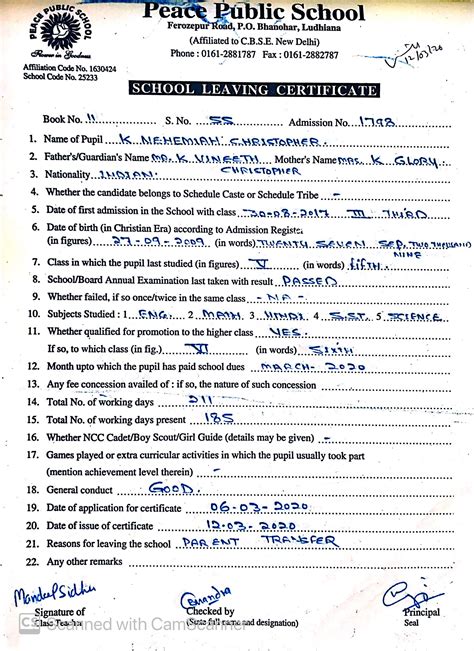 PEACE PUBLIC SCHOOL
Peace Public School
Ferozepur Road, P.O. Bhanohar, Ludhiana
(Affiliated to C.B.S.E. New Delhi)
Phone : 0161-2881787 Fax : 0161-2882787
Affiliation Code No. 1630424
School Code No. 25233
12/03/20
SCHOOL LEAVING CERTIFICATE
Book No. 11 S. No. 55 Admission No. 1798
1. Name of Pupil K NEHEMIAH CHRISTOPHER
2. Father's/Guardian's Name MR. K VINEETH Mother's Name MRS. K GLORY
CHRISTOPHER
3. Nationality INDIAN
4. Whether the candidate belongs to Schedule Caste or Schedule Tribe -
5. Date of first admission in the School with class 30-08-2017 III THIRD
6. Date of birth (in Christian Era) according to Admission Register
(in figures) 27-09-2009 (in words) TWENTY SEVEN SEP, TWO THOUSAND
NINE
7. Class in which the pupil last studied (in figures) V (in words) fifth
8. School/Board Annual Examination last taken with result PASSED
9. Whether failed, if so once/twice in the same class - NA -
10. Subjects Studied : 1 ENG. 2 MATH 3 HINDI 4 S.ST. 5 SCIENCE
11. Whether qualified for promotion to the higher class YES.
If so, to which class (in fig.) VI (in words) SIXTH
12. Month upto which the pupil has paid school dues MARCH-2020
13. Any fee concession availed of : if so, the nature of such concession
14. Total No. of working days 211
15. Total No. of working days present 185
16. Whether NCC Cadet/Boy Scout/Girl Guide (details may be given) -
17. Games played or extra curricular activities in which the pupil usually took part
(mention achievement level therein) -
18. General conduct GOOD.
19. Date of application for certificate 06-03-2020
20. Date of issue of certificate 12-03-2020
21. Reasons for leaving the school PARENT TRANSFER
22. Any other remarks
Mandeep Sidhu
Signature of Checked by Principal
Class Teacher (State full name and designation) Seal
CS Scanned with CamScanner